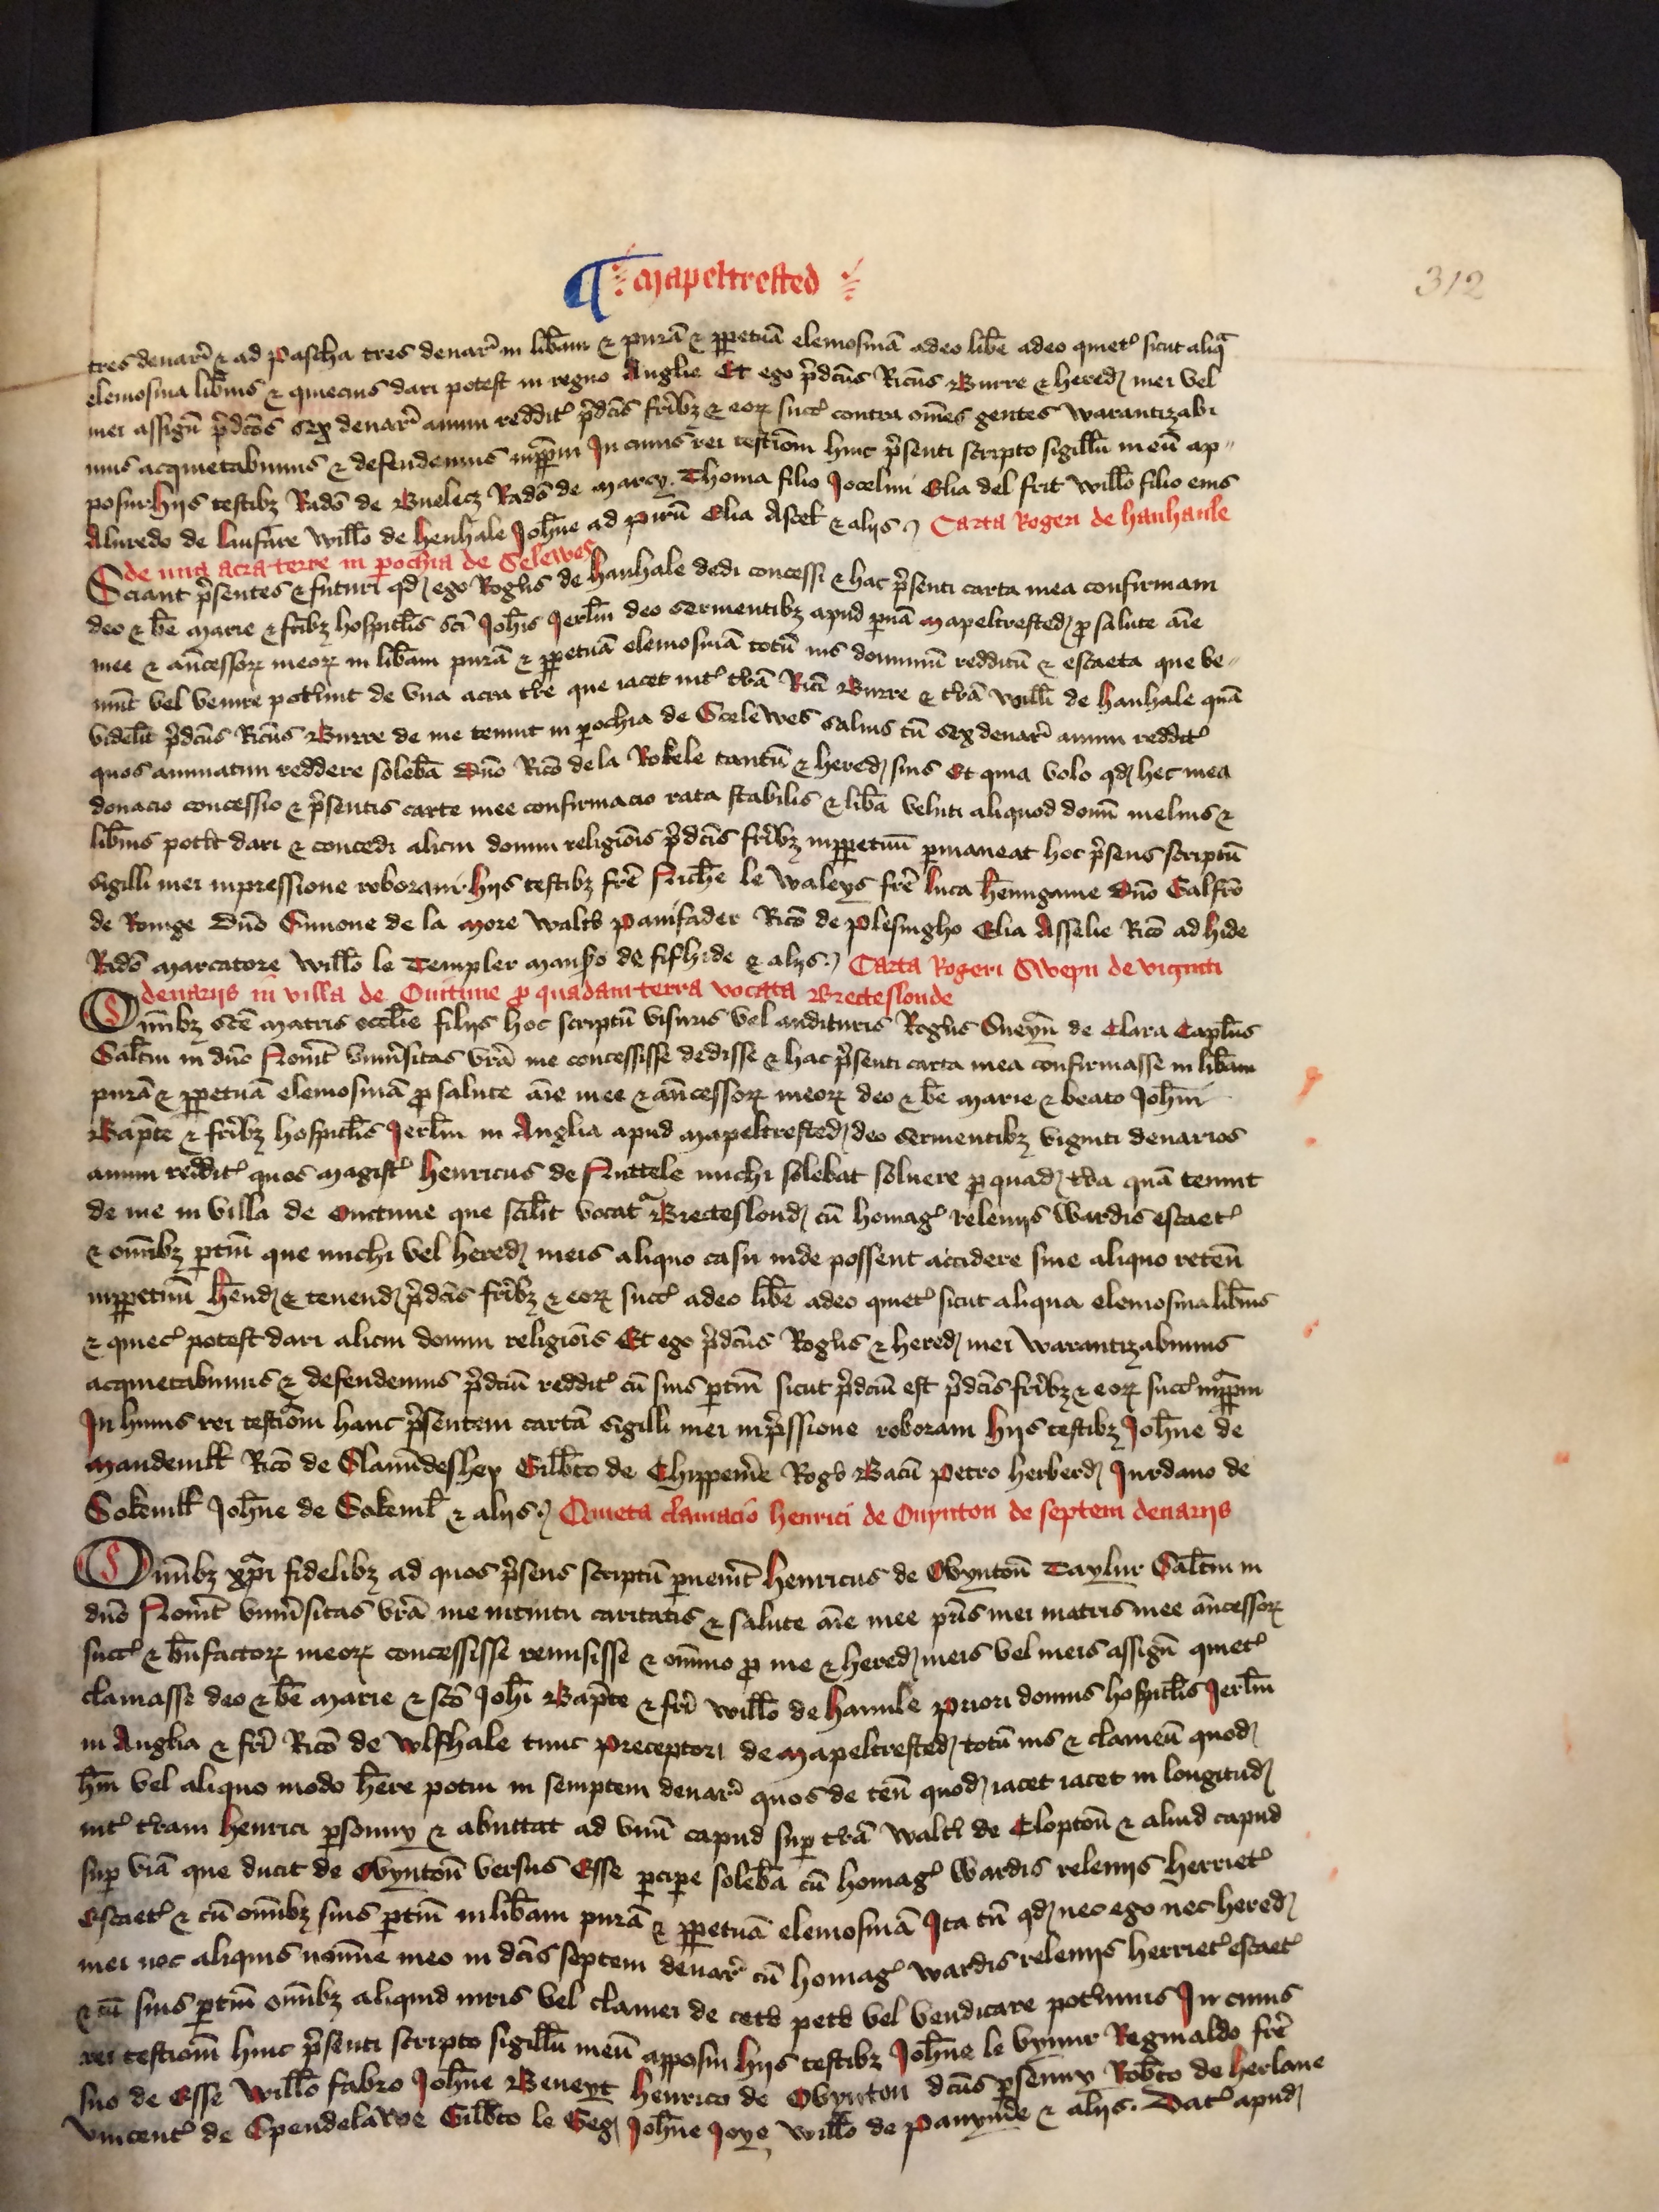 ¶ Mapeltrested
312
tres denar̄ & ad Pascha tres denar̄ in lib̄am & purā & ꝑpetuā elemosinā adeo lib̄e adeo quiet' sicut aliqᵃ
elemosina lib̄ius & quiecius dari potest in regno Anglie Et ego p̄dc̄us Ric̄us Burre & hered' mei vel
mei assign̄ p̄dc̄os sex denar̄ annui reddit' p̄dc̄is fr̄ibꝫ & eoꝝ succ' contra om̄es gentes warantizabi
mus acquietabimus & defendemus inꝑpm̄ In cuius rei testiōm huic p̄senti scripto sigillū meū ap-
posui hijs testibꝫ Rado de Buelecz Rado de Marcy Thoma filio Jocelini Elia del frit Willo filio eius
Aluredo de Luifare Willo de Henhale Joh̄ne ad Pirū Elia Ascel & alijs Carta Rogeri de Hanhaule
de una acra terre in ꝑochia de Selewes
Sciant p̄sentes & futuri qd' ego Rogus de Hanhale dedi concessi & hac p̄senti carta mea confirmam
deo & b̄e Marie & fr̄ibꝫ hospitlis sc̄i Joh̄is Jerlm̄ deo seruientibꝫ apud ꝑuā Mapeltrested' ꝓ salute aīe
mee & an̄cessoꝝ meoꝝ in lib̄am purā & ꝑpetuā elemosinā totū ius dominiū redditū & escaeta que ve-
niūt vel venire pot̄unt de vna acra t̄re que iacet int' t̄rā Rici Burre & t̄rā Willi de Hanhale quā
videlit p̄dc̄us Ric̄us Burre de me tenuit in ꝑochia de Scelewes saluis tn̄ sex denar̄ annui reddit'
quos annuatim reddere solebā Dn̄o Rico de la Rokele tantū & hered' suis Et quia volo qd' hec mea
donacio concessio & p̄sentis carte mee confirmacio rata stabilis & lib̄a veluti aliquod donū melius &
lib̄ius pot̄it dari & concedi alicui domui religiōis p̄dc̄is fr̄ibꝫ inꝑpetuū ꝑmaneat hoc p̄sens scriptū
sigilli mei inpressione roboraui hijs testibꝫ fr̄e Nich̄e le Waleys fr̄e Luca Henngame Dn̄o Galfro
de Roinge Dn̄o Simone de la More Walt̄o Panifader Rico de Plesingho Elia Asselie Rico ad Hide
Rado Marcatore Willo le Templer Manso de fifhide & alijs Carta Rogeri Sweyn de viginti
denarijs in villa de Ouitune ꝓ quadam terra vocata Brecteslonde
Omn̄ibꝫ sc̄e matris eccl̄ie filijs hoc scriptū visuris vel audituris Rogus Sueyn̄ de Clara Capl̄us
Salt̄m in dn̄o Nou̅it vniu̅sitas vr̄a me concessisse dedisse & hac p̄senti carta mea confirmasse in lib̄am
purā & ꝑpetuā elemosinā ꝓ salute aīe mee & an̄cessoꝝ meoꝝ deo & b̄e Marie & beato Joh̄i
Bap̄te & fr̄ibꝫ hospitlis Jerlm̄ in Anglia apud Mapeltrested' deo seruientibꝫ viginti denarios
annui reddit' quos magist' Henricus de Nuttele michi solebat soluere ꝓ quad' t̄ra quā tenuit
de me in villa de Ouitune que scilit vocat' Brecteslond' cū homag' releuijs wardis escaet'
& om̄ibꝫ ꝑtin̄ que michi vel hered' meis aliquo casu inde possent accidere sine aliquo reten̄
inꝑpetuū Hend' & tenend' p̄dc̄is fr̄ibꝫ & eoꝝ succ' adeo lib̄e adeo quiet' sicut aliqua elemosina lib̄ius
& quiec' potest dari alicui domui religiōis Et ego p̄dc̄us Rogus & hered' mei warantizabimus
acquietabimus & defendemus p̄dc̄um reddit' cū suis ꝑtin̄ sicut p̄dc̄um est p̄dc̄is fr̄ibꝫ & eoꝝ succ' inꝑpm̄
In huius rei testiōm hanc p̄sentem cartā sigilli mei inp̄ssione roboraui hijs testibꝫ Joh̄ne de
Mandeuill Rico de Clauūdeshey Gilb̄to de Chippenh̄e Rogo Bacū Petro Herberd' Jurdano de
Sokenill Joh̄ne de Sokenil & alijs Quieta clamacio Henrici de Ouynton de septem denarijs
Omn̄ibꝫ xp̄i fidelibꝫ ad quos p̄sens scriptū ꝑuenerit Henricus de Ovyntoū Taylur Salt̄m in
dn̄o Nou̅it vniu̅sitas vr̄a me intuitu caritatis & salute aīe mee pr̄is mei matris mee an̄cessoꝝ
succ' & bn̄factoꝝ meoꝝ concessisse remisisse & om̄ino ꝓ me & hered' meis vel meis assign̄ quiet'
clamasse deo & b̄e Marie & sc̄o Joh̄i Bap̄te & fr̄i Willo de Hanule Priori domus hospitlis Jerlm̄
in Anglia & fr̄i Rico de Wlfhale tunc Preceptori de Mapeltrested' totū ius & clameū quod'
h̄ui vel aliquo modo h̄ere potui in semptem denar̄ quos de ten̄ quod' iacet iacet in longitud'
int' t̄ram Henrici ꝑsonny & abuttat ad vnū capud suꝑ t̄rā Walti de Cloptoū & aliud capud
suꝑ viā que ducit de Ovyntoū versus Esse ꝑciꝑe solebā cū homag' wardis releuijs herriet'
escaet' & cū om̄ibꝫ suis ꝑtin̄ in lib̄am purā & ꝑpetuā elemosinā Ita tn̄ qd' nec ego nec hered'
mei nec aliquis nomine meo in dc̄is septem denar̄ cū homag' wardis releuijs herriet' escaet'
& cū suis ꝑtin̄ om̄ibꝫ aliquid iuris vel clamei de cet̄o pet̄e vel vendicare pot̄imus In cuius
rei testiōm huic p̄senti scripto sigillū meū apposui hijs testibꝫ Joh̄ne le Vynur Reginaldo fr̄e
suo de Esse Willo Fabro Joh̄ne Beneyt Henrico de Ovynton dc̄us ꝑsenny Rob̄to de Herlane
Vincent' de Spendelawe Gilb̄to le Geg' Joh̄ne Joye Willo de Panym̄de & alijs. Dat' apud'